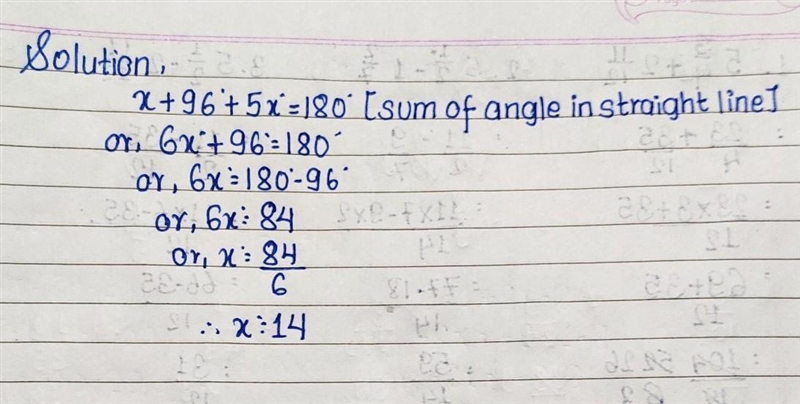 Solution,
x + 96° + 5x° = 180° [sum of angle in straight line]
or, 6x° + 96° = 180°
or, 6x° = 180° - 96°
or, 6x° = 84
or, x° = 84/6
∴ x° = 14